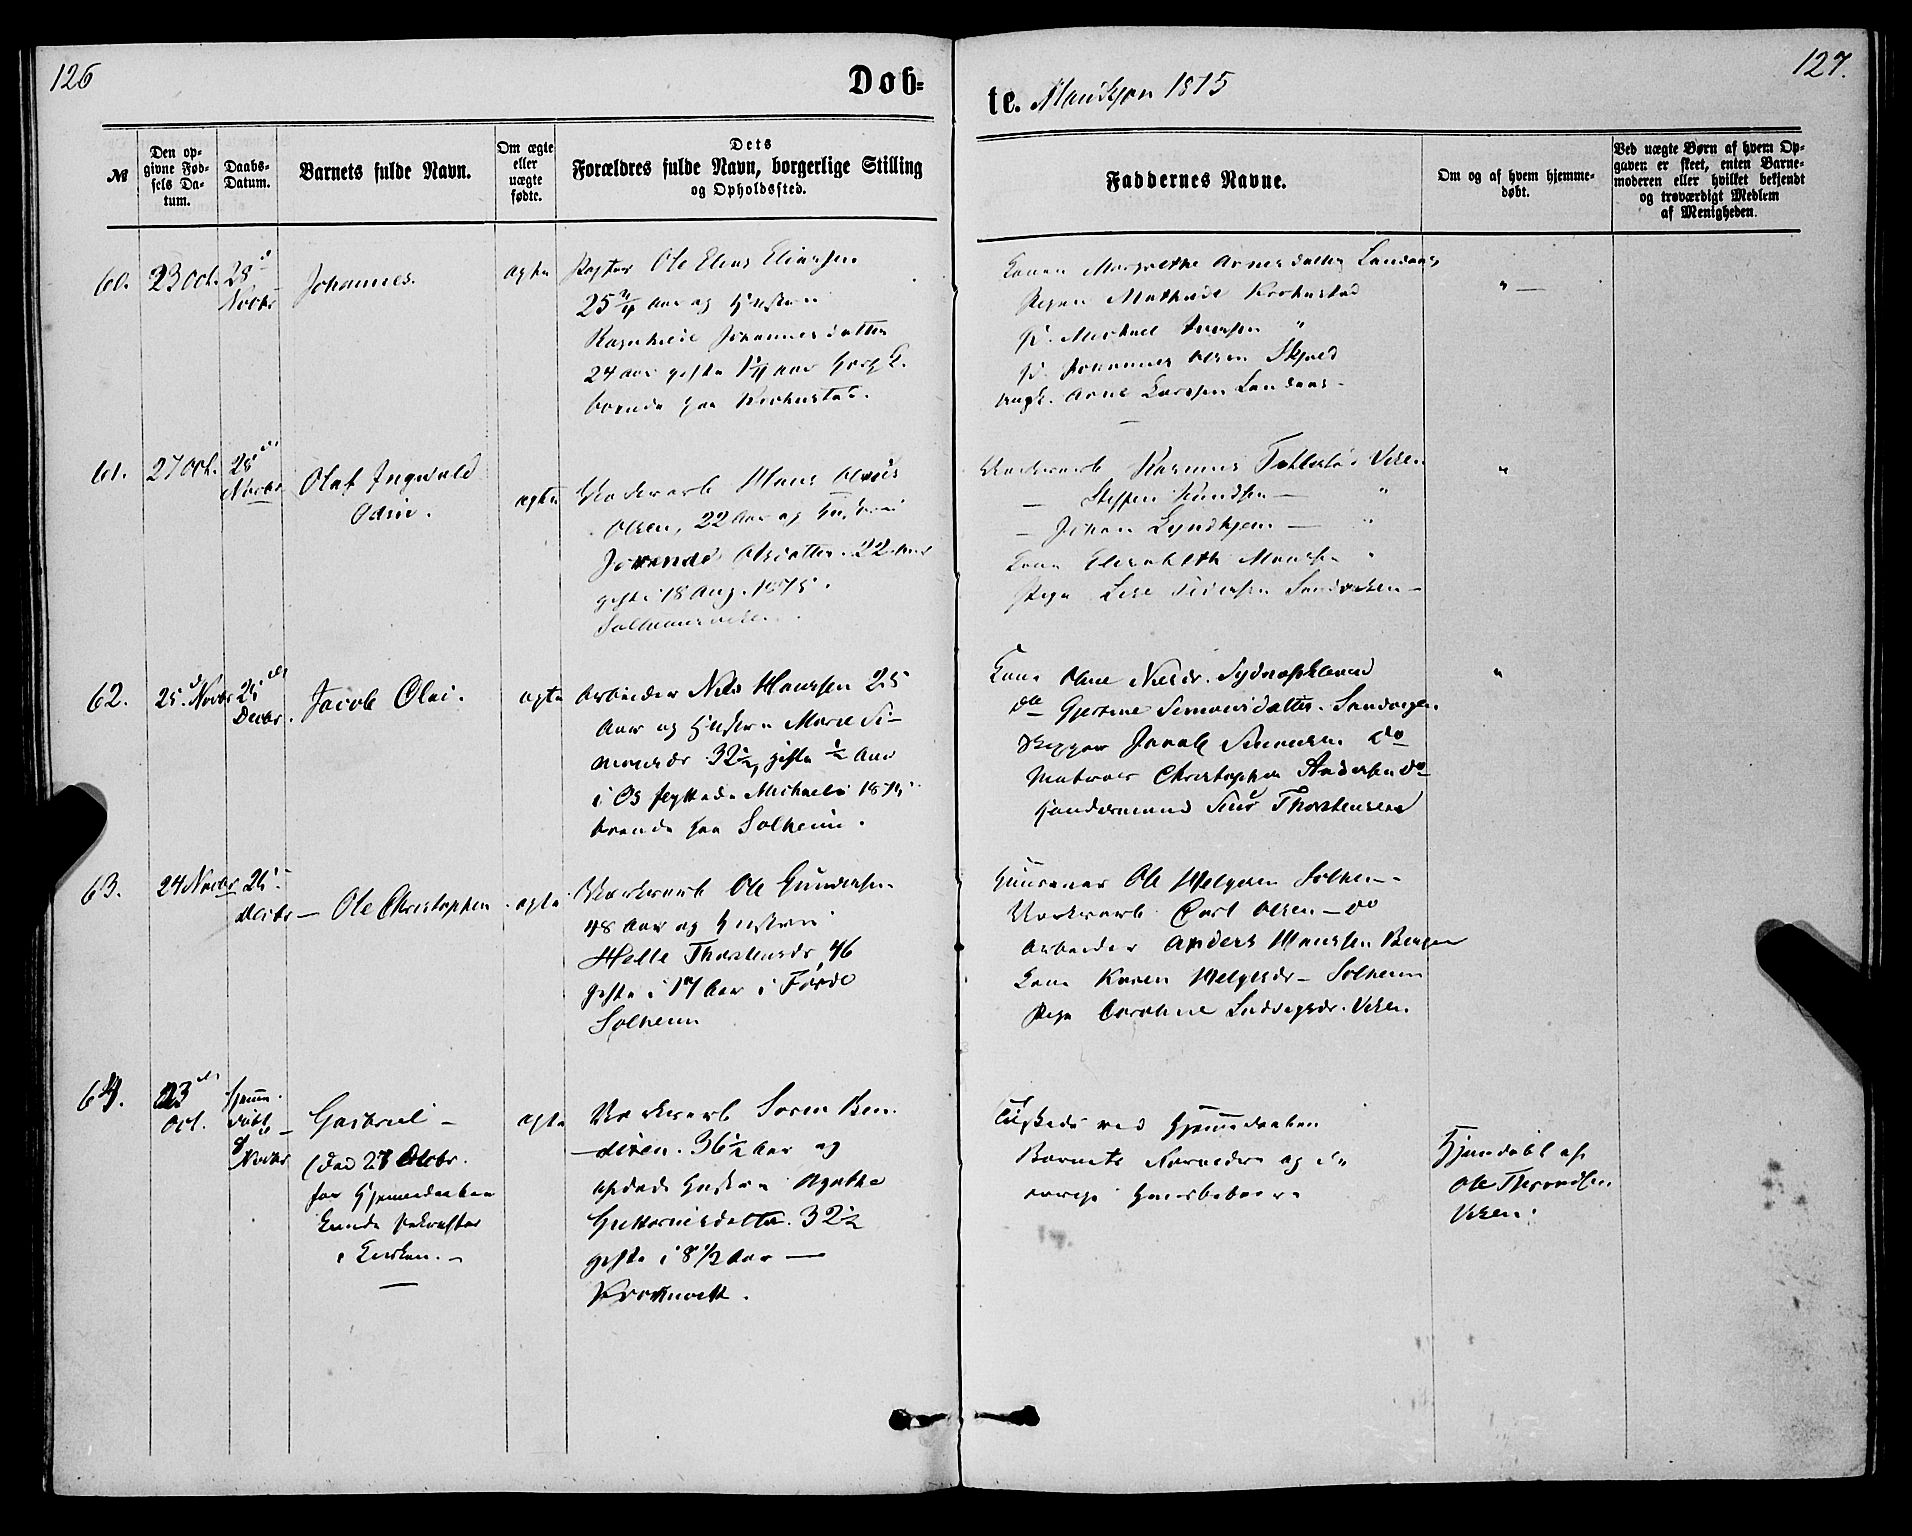 126
Døb-
te. Mandkjøn 1875
127.
№
Den op-
givne Fød-
sels Da-
tum.
Daabs-
Datum.
Barnets fulde Navn.
Om ægte
eller
uægte
fødte.
Dets
Forældres fulde Navn, borgerlige Stilling
og Opholdssted.
Faddernes Navne.
Om og af hvem hjemme-
døbt.
Ved uægte Børn af hvem Op-
gaven er skeet, enten Barne-
moderen eller hvilket bekjendt
og troværdigt Medlem
af Menigheden.
60.
23 Oct.
28
Novbr
Johannes.
ægte
Ole Elias Eliassen
25 Aar og Hustru
Ragnhilde Johannesdatter
24 aar gifte aar
boende paa
Kone Margrethe Arnesdatter Landaas
Pigen Mathilde Krohnstad
Michael Iversen "
Johannes Olsen Skjold
Ungk. Arne Larssen Landaas
"
61.
27 Oct.
28
Novbr
Olaf Ingvald
Odin.
ægte
Hans
Olsen, 22 Aar og Hustru
Olsdatter. 22 Aar
gifte 18 Aug. 1875.
Solheimsviken.
Rasmus Viken
— Steffen Knudsen — "
— Johan — "
Kone Elisabeth Monsen "
Pige Lise Pedersen
"
62.
25 Novbr
26
Decbr.
Jacob Olai.
ægte
Arbeider Nils Hanssen 25
Aar og Hustru Marie Si-
monsdr 32½, gifte ½ Aar
i Os flyttede Michaeli 1875
boende paa Solheim.
Kone Oline Nielsdr.
do Gjertine Simonsdatter. Sandvigen.
Skipper Jacob Simonsen do
Matros Christopher Andersen do
Handelsmand Thorstensen
"
63.
24 Novbr
26
Decbr
— Ole Christopher
ægte
Værksarb Ole Gundersen
48 Aar og Hustru
Helle Thorstensdr, 46
gifte i 17 Aar i Førde
Solheim
Huusmand Ole Helgesen Solheim
Værksarb. Carl Olsen — do
Arbeider Anders Monssen Bergen
Kone Karen Helgesdr — Solheim
Pige Caroline Ludvigsdr. Viken.
64.
23
Oct.
Hjemme-
døbt
8
Novbr
Gabriel —
(Død 27 Decbr.
før Hjemmedaaben
kunde bekræftes
i Kirken. —
ægte
Værksarb Søren Ben-
dixen. 36½ Aar og
Hustru Agathe
Guttormsdatter. 32½
gifte i 8½ Aar —
Tilstede ved Hjemmedaaben
Barnets Forældre og de
øvrige Huusbeboere
Hjemdøbt af
Ole Thorvaldsen
Viken.